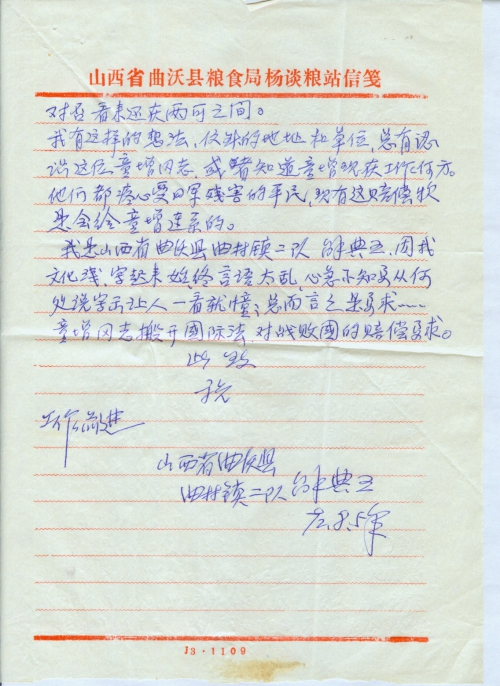 山西省曲沃县粮食局杨谈粮站信笺
对否看来还在两可之间。
我有这样的想法,仅外的地址和单位,总有认
识这位童增同志,或者知道童增现在工作何方。
他们都疼心受日军残害的平民,现有这赔偿
息会给童增连系的。
我是山西省曲沃县曲村镇二队 典五,因我
文化浅,字起来始终言语太乱,心急不知要从何
处说字而让人一看就懂;总而言之是要求……
童增同志搬开國际法,对战败國的赔偿要求。
此致
祝
工作前进
山西省曲沃县
曲村镇二队 典五
J3·1109